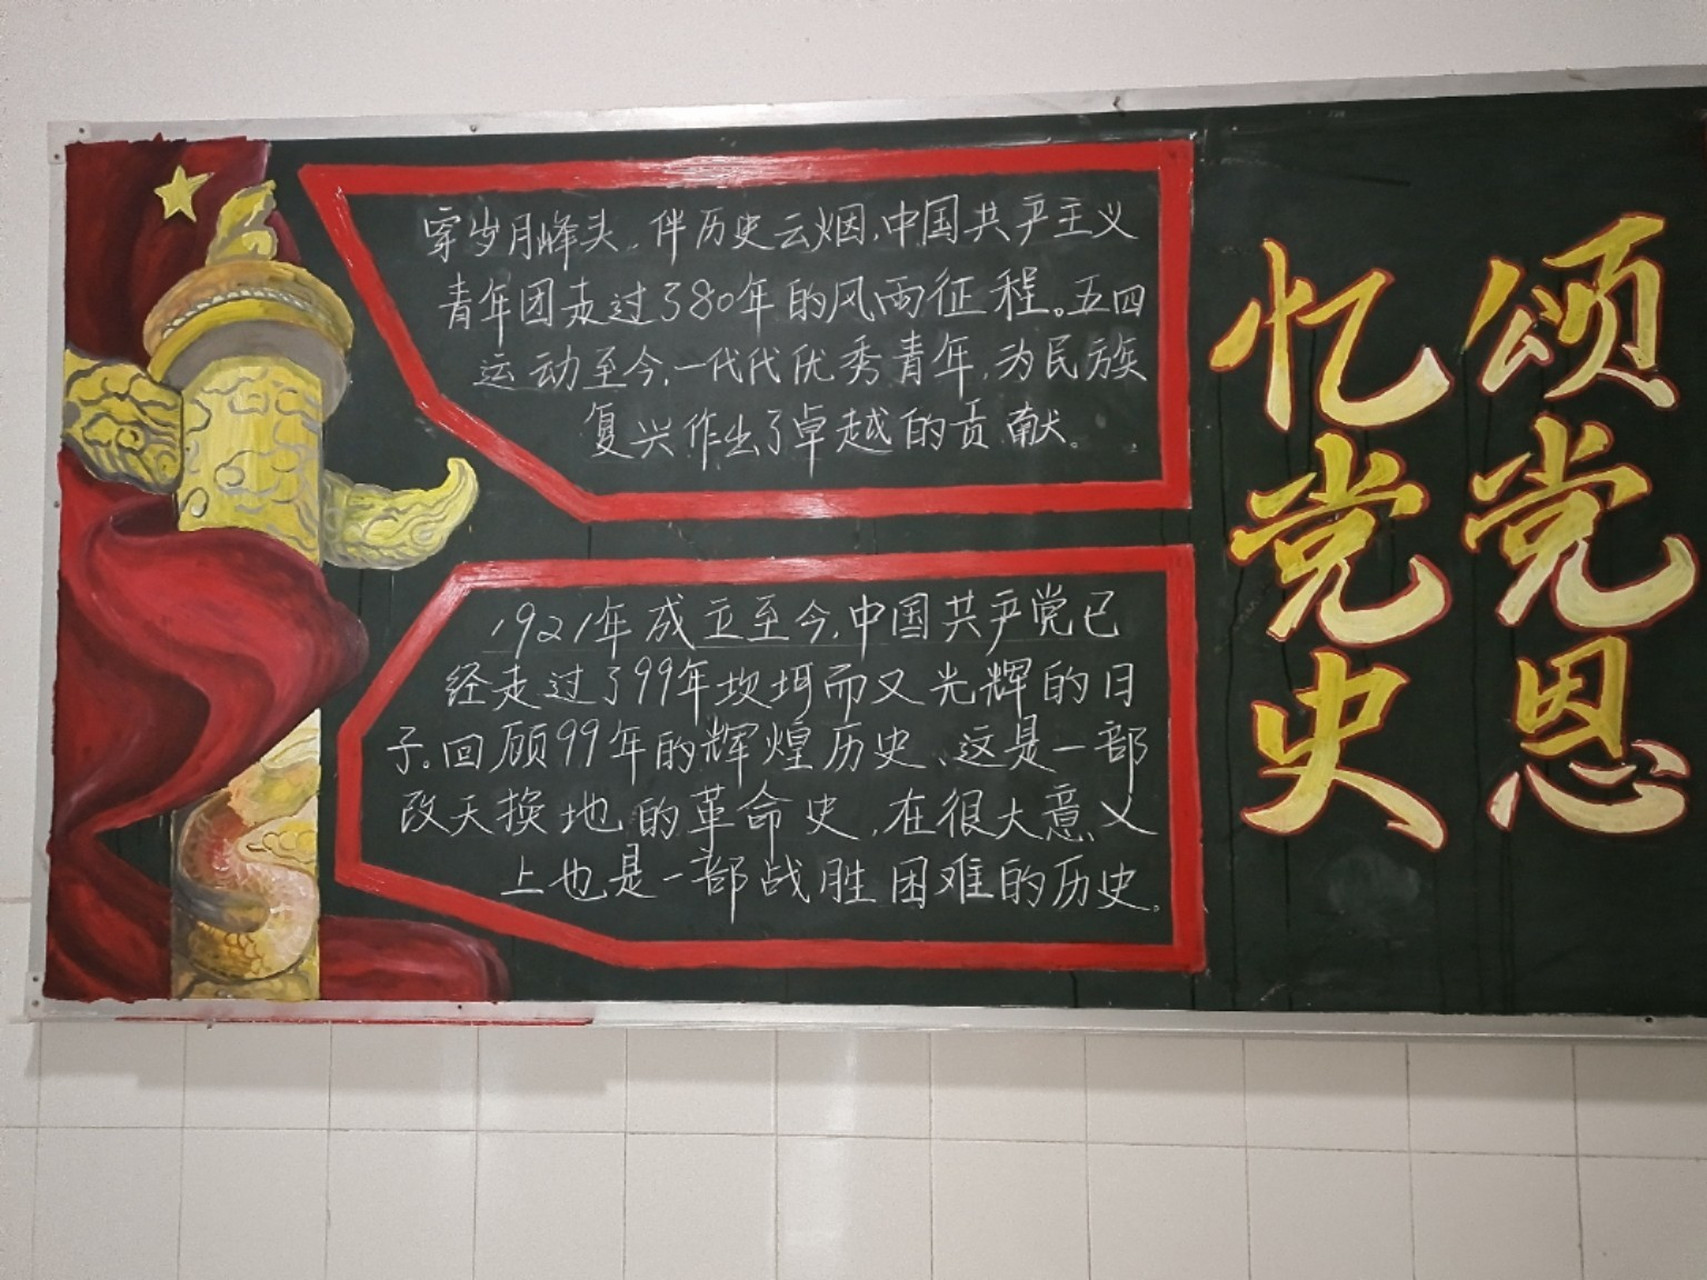 穿岁月峰头,伴历史云烟,中国共产主义
青年团走过了80年的风雨征程。五四
运动至今,一代代优秀青年,为民族
复兴作出了卓越的贡献。
1921年成立至今,中国共产党已
经走过了99年坎坷而又光辉的日
子。回顾99年的辉煌历史、这是一部
改天换地的革命史,在很大意义
上也是一部战胜困难的历史。
颂党恩
忆党史